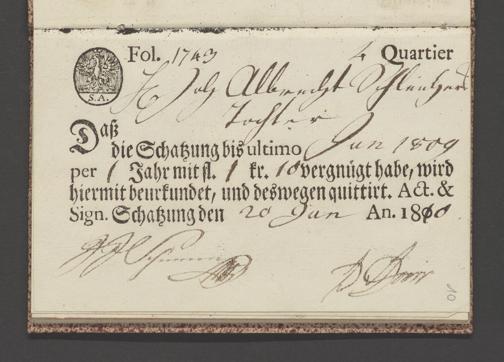 Fol. 1743 4 Quartier
S. A.
H Joh Albrecht Schlenkers
Tochter
Daß
die Schatzung bis ultimo Jun 1809
per 1 Jahr mit fl. 1 kr. 10 vergnügt habe, wird
hiermit beurkundet, und deswegen quittirt. Act. &
Sign. Schatzung den 20 Jun An. 1810
10